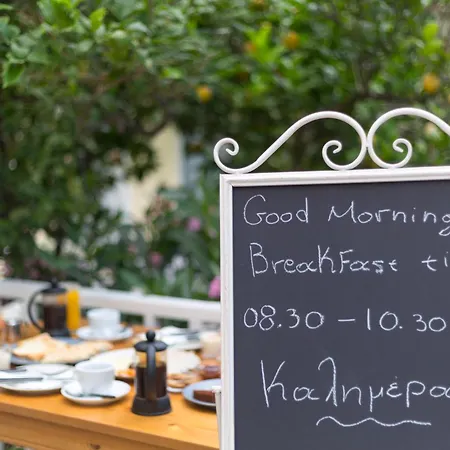 Good Morning
Breakfast ti
08.30 – 10.30
Καλημέρα